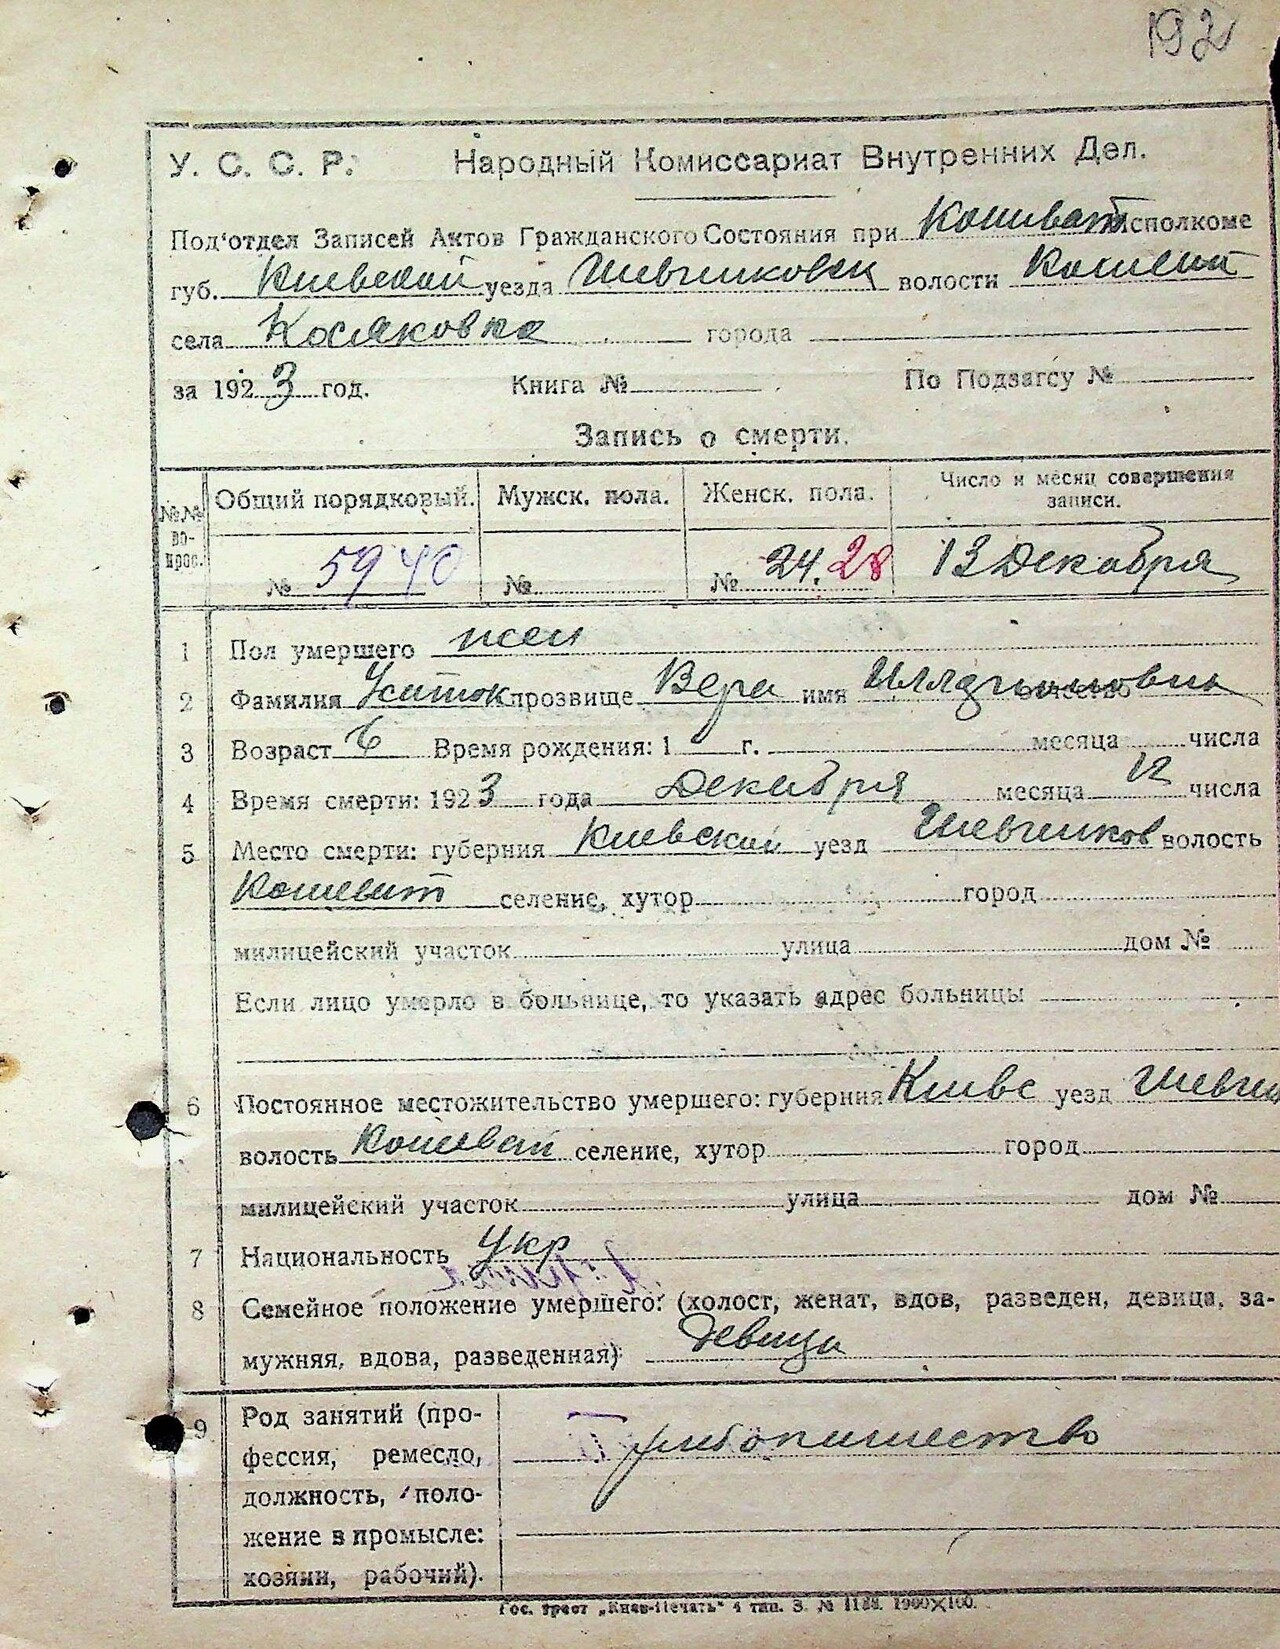 192
У. С. С. Р. Народный Комиссариат Внутренних Дел.
Под'отдел Записей Актов Гражданского Состояния при Кошеват исполкоме
губ. Киевской уезда Шевченковск волости Кошеват
села Косяковка города
за 1923 год. Книга № По Подзагсу №
Запись о смерти.
№№ вопрос. Общий порядковый. Мужск. пола. Женск. пола. Число и месяц совершения записи.
№ 59 40 № № 24. 28 13 Декабря
1 Пол умершего жен
2 Фамилия Уситок прозвище Вера имя отчество
3 Возраст 6 Время рождения: 1 г. месяца числа
4 Время смерти: 1923 года Декабря месяца 12 числа
5 Место смерти: губерния Киевский уезд Шевченков волость
Кошеват селение, хутор город
милицейский участок улица дом №
Если лицо умерло в больнице, то указать адрес больницы
6 Постоянное местожительство умершего: губерния Киевс уезд Шевчен
волость Кошеват селение, хутор город
милицейский участок улица дом №
7 Национальность Укр
8 Семейное положение умершего: (холост, женат, вдов, разведен, девица, за-
мужняя, вдова, разведенная) Девица
9 Род занятий (про-
фессия, ремесло,
должность, поло-
жение в промысле:
хозяин, рабочий).
Гос. трест „Киев-Печать" 4 тип. З. № 1188. 1900×100.